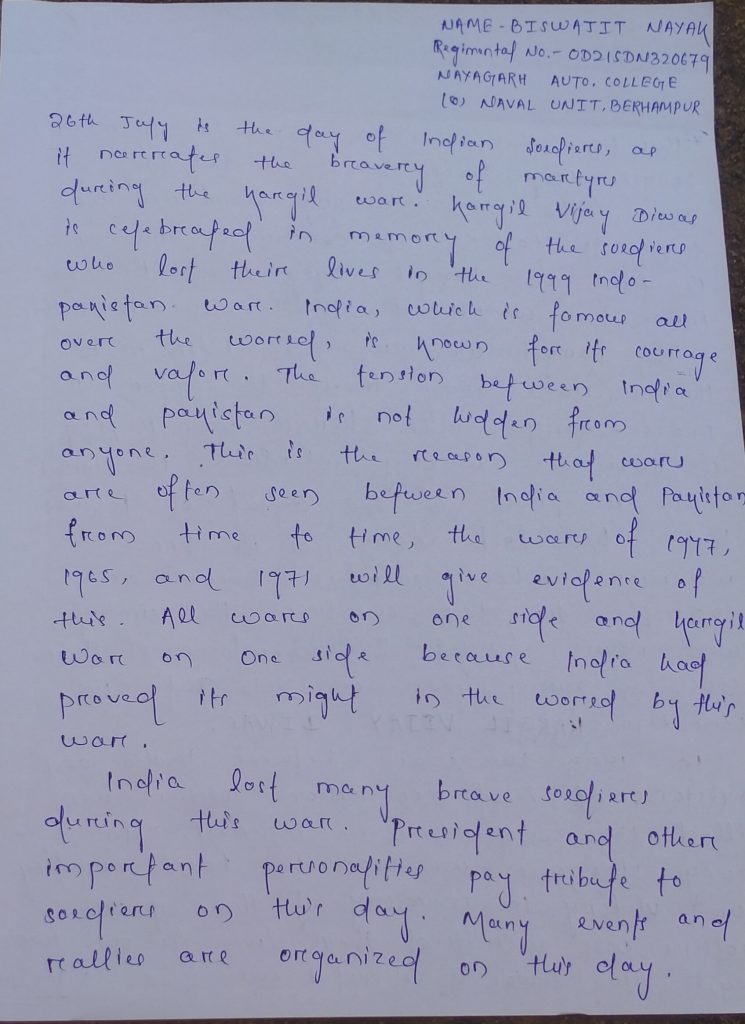 NAME - BISWAJIT NAYAK
Regimental No. - OD21SDN320679
NAYAGARH AUTO. COLLEGE
(O) NAVAL UNIT, BERHAMPUR
26th July is the day of Indian Soldiers, as
it narrates the bravery of martyrs
during the Kargil war. Kargil Vijay Diwas
is celebrated in memory of the soldiers
who lost their lives in the 1999 Indo-
pakistan war. India, which is famous all
over the world, is known for its courage
and valor. The tension between India
and pakistan is not hidden from
anyone. This is the reason that wars
are often seen between India and Pakistan
from time to time, the wars of 1947,
1965, and 1971 will give evidence of
this. All wars on one side and Kargil
war on one side because India had
proved its might in the world by this
war.
India lost many brave soldiers
during this war. President and other
important personalities pay tribute to
soldiers on this day. Many events and
rallies are organized on this day.